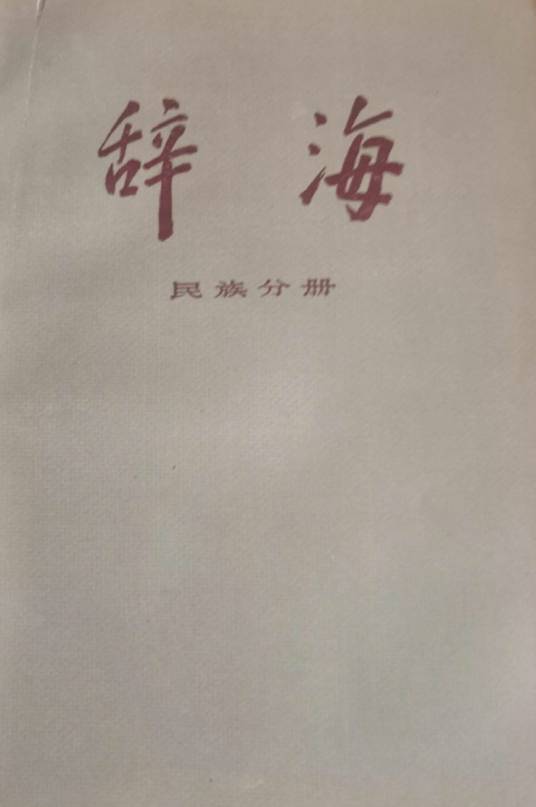 辞海
民族分册